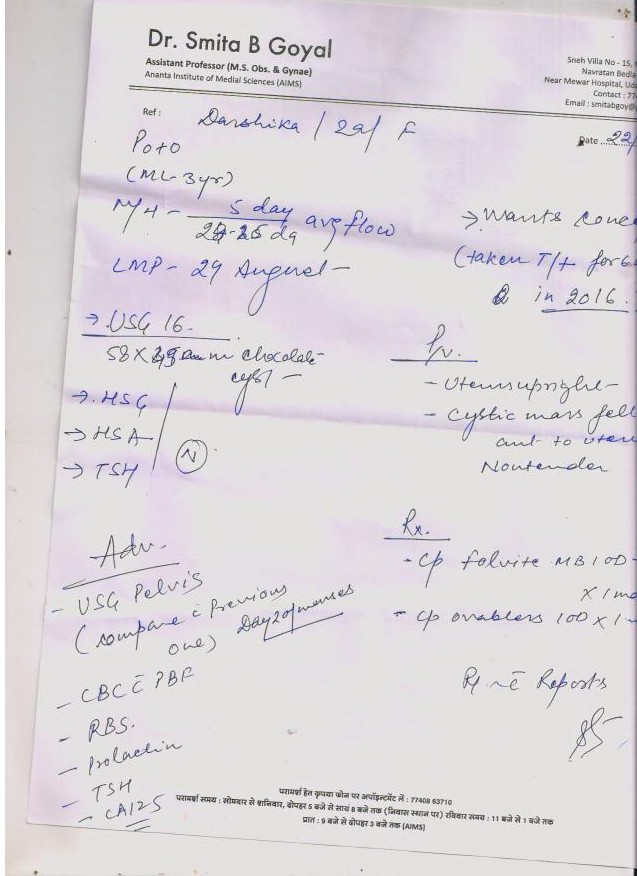 Dr. Smita B Goyal
Assistant Professor (M.S. Obs. & Gynae)
Ananta Institute of Medial Sciences (AIMS)
Sneh Villa No - 15,
Navratan
Near Mewar Hospital,
Contact : 77
Email : smitabgoy@
Ref :
Darshika / 22/ F
Date 22/
P0+0
(ML-3yr)
M/H - 5 day avg flow
LMP - 29 August -
→ Wants
(taken T/t for
in 2016.
→ USG 16.
58 X chocolate
cyst -
→ HSG
→ HSA
→ TSH
N
P/v.
- Uterus upright -
- Cystic mass fell
ant to uter
Nontender
Adv.
- USG Pelvis
(compare c̄ Previous
one) Day 2 of menses
- CBC c̄ PBF
- RBS.
- Prolactin
- TSH
- CA125
Rx.
- Cp folvite MB 1 OD
X 1 mo
- Cp ovabless 1 OD X 1
c̄ Reports
परामर्श हेतु कृपया फोन पर अपॉइन्टमेंट लें : 77408 63710
परामर्श समय : सोमवार से शनिवार, दोपहर 5 बजे से सायं 8 बजे तक (निवास स्थान पर) रविवार समय : 11 बजे से 1 बजे तक
प्रात : 9 बजे से दोपहर 3 बजे तक (AIMS)